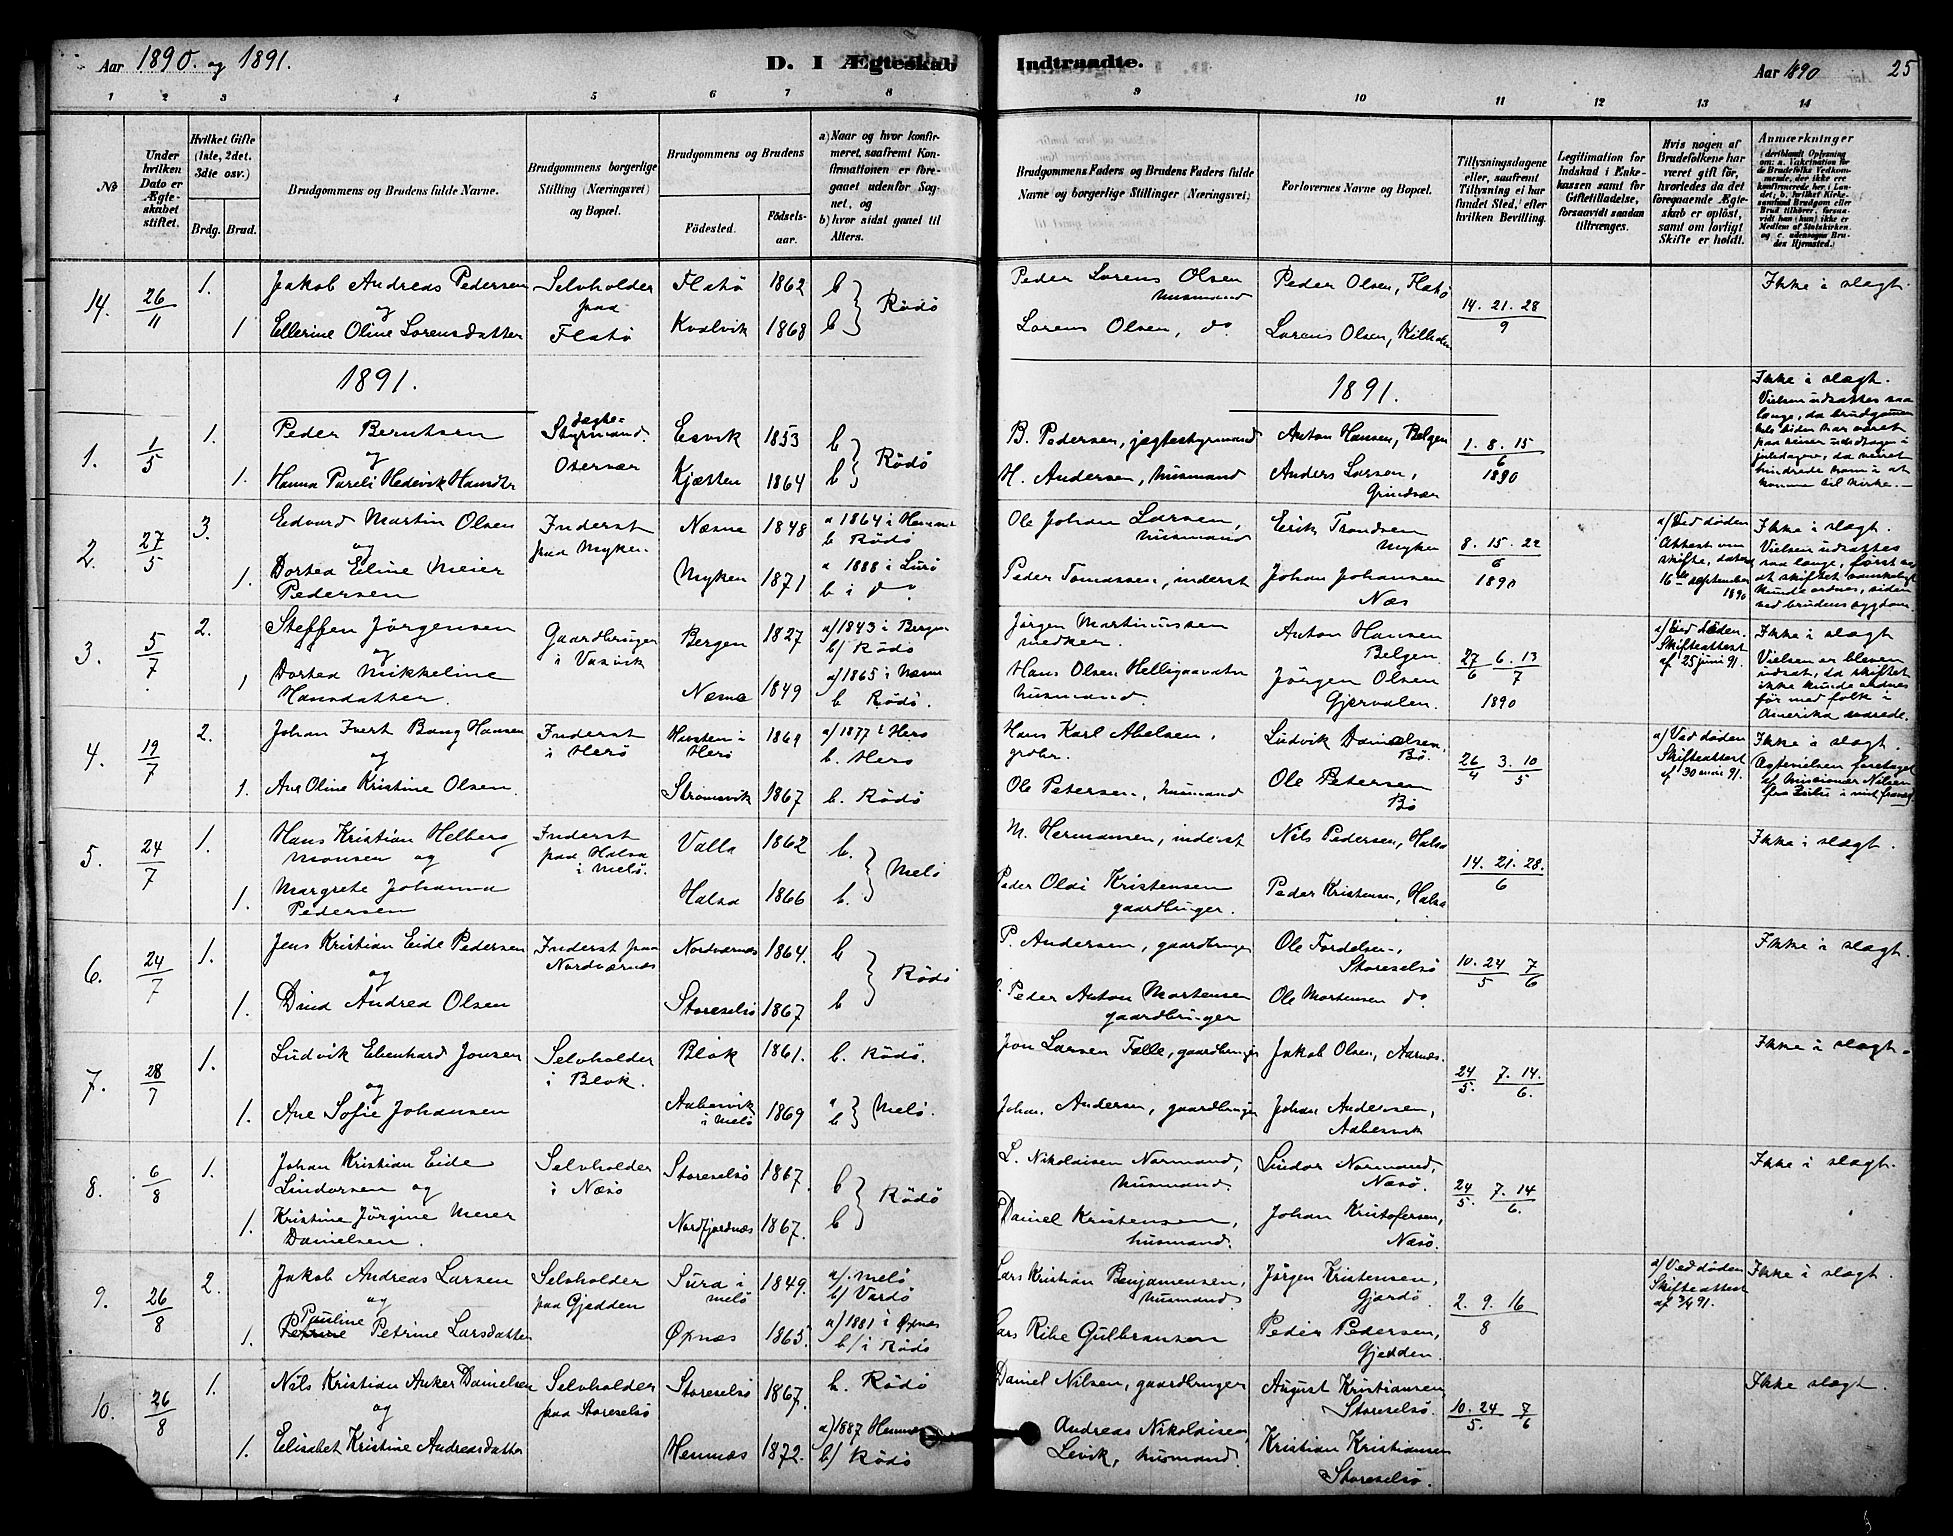 Aar 1890. og 1891.
D. I Ægteskab Indtraadte.
Aar 1890
25
1 2 3 4 5 6 7 8 9 10 11 12 13 14
No
Under hvilken Dato er Ægteskabet stiftet.
Hvilket Gifte (1ste, 2det. 3dte osv.)
Brdg. Brud.
Brudgommens og Brudens fulde Navne.
Brudgommens borgerlige Stilling (Næringsvei) og Bopæl.
Brudgommens og Brudens
Födested.
Födselsaar.
a) Naar og hvor konfirmeret, saafremt Konfirmationen er foregaaet udenfor Sognet, og
b) hvor sidst gaaet til Alters.
Brudgommens Faders og Brudens Faders fulde Navne og borgerlige Stillinger (Næringsvei).
Forlovernes Navne og Bopæl.
Tillysningsdagene eller, saafremt Tillysning ei har fundet Sted, efter hvilken Bevilling.
Legitimation for Indskud i Enkekassen samt for Giftetilladelse, forsaavidt saadan tiltrænges.
Hvis nogen af Brudefolkene har været gift før, hvorledes da det foregaaende Ægteskab er oplöst, samt om lovligt Skifte er holdt.
Anmærkninger (deriblandt Oplysning om: a. Vakcination for de Brudefolks Vedkommende, der ikke ere konfirmerede her i Landet; b. hvilket Kirkesamfund Brudgom eller Brud tilhörer, forsaavidt han (hun) ikke er Medlem af Statskirken, og c. udensogns Brudes Hjemsted.)
14. 26/11 1. Jakob Andreas Pedersen Selvholder Flatö 1862 b
og paa } Rödö
1 Ellerine Oline Lorensdatter Flatö Kvalvik 1868 b
Peder Lorens Olsen husmand Peder Olsen, Flatö 14. 21. 28/9 Ikke i slægt.
Lorens Olsen, do Lorens Olsen,
1891. 1891.
1. 1/5 1. Peder Berntsen Jægtestyrmand. Esvik 1853 b
og } Rödö
1. Hanna Pareli Hedevik Hansdtr Oservær Kjætten 1864 b
B. Pedersen, jægtestyrmand Anton Hansen, Belgen 1. 8. 15/6
H. Andersen, husmand Anders Larsen, Grindsøen 1890
Ikke i slægt.
Vielsen udsattes saa længe, da brudgommen
2. 27/5 3. Edvard Martin Olsen Inderst Næsne 1848 a 1864 i
og paa Myken b Rödö
1. Dortea Eline Meier Pedersen Myken 1871 a 1888 i Lurö
b i do.
Ole Johan Larsen, husmand Erik Trondsen Myken 8. 15. 22/6
Peder Tomassen, inderst Johan Johansen Næs 1890
a/ Ved döden
Attest om skifte, dateret 16de september 1890
Ikke i slægt.
Vielsen udsattes saa længe, först
3. 5/7 2. Steffen Jörgensen Gaardbruger Bergen 1827 a/ 1843 i Bergen
og i b/ Rödö
1 Dortea Mikkeline Hansdatter Nesne 1849 a/ 1865 i Nesne
b Rödö.
Jörgen Martinussen Anton Hansen Belgen 27/6 6. 13/7
Hans Olsen husmand. Jörgen Olsen Gjervalen. 1890
a/ Ved döden.
Skifteattest af 25 juni 91.
Ikke i slægt
Vielsen er bleven udsat, da skiftet ikke kunde ordnes før med folk i Amerika
4. 19/7 2. Johan Ivert Bang Hansen Inderst i Herö 1869 a/ 1877 i Herö
og i Herö b. Herö
1. Ane Oline Kristine Olsen. Strömsvik 1867 b. Rödö
Hans Karl Abelsen, grdbr. Ludvik Danielsen, Bö. 26/4 3. 10/5
Ole Petersen, husmand Ole Petersen Bö
a/ Ved döden
Skifteattest
Ikke i slægt.
5. 24/7 1. Hans Kristian Helberg Monsen og Inderst paa Halsa i Melö. Valla 1862 b.
} Melö
1. Margrete Johanna Pedersen Halsa 1866 b.
M. Hermansen, inderst Nils Pedersen, Halsa 14. 21. 28./6 Ikke i slægt.
Peder Oldi Kristensen gaardbruger. Peder Kristensen, Halsa
6. 24/7 1. Jens Kristian Eide Pedersen Inderst paa Nordværnæs Nordvernæs 1864. b
og } Rödö
1. Dina Andrea Olsen Storeselsö 1867. b
P. Andersen, gaardbruger Ole Storeselsö 10. 24/5 7/6 Ikke i slægt.
Peder Anton Mortensen gaardbruger Ole Mortensen do.
7. 28/7 1. Ludvik Ebenhard Jonsen Selvholder Blok 1861. b. Rödö.
og i Blok.
1. Ane Sofie Johansen Aabesvik i Melö 1869 a b } Melö.
Jon Larsen Falle, gaardbruger Jakob Olsen, Aarnæs. 24/5. 7. 14./6. Ikke i slægt.
Johan Andersen, gaardbruger Johan Andersen, Aabesvik
8. 6/8 1. Johan Kristian Eide Lindorsen og Selvholder i Næsö Storeselsö 1867. b
} Rödö
1. Kristine Jörgine Meier Danielsen. Nordfjordnæs 1867. b
L. Nikolaisen Normand, husmand. Lindor Normand, Næsö. 24/5. 7. 14/6. Ikke i slægt.
Daniel Kristensen, husmand. Johan Kristofersen, Næsö.
9. 26/8 2. Jakob Andreas Larsen Selvholder Sura i Melö 1849. a/. Melö
og paa Gjedden b/ Vardö
1. Pauline Petrine Larsdatter Øxnæs 1865. a/ 1881 i Øxnæs
b/ i Rödö
Lars Kristian Benjamensen, husmand. Jörgen Kristensen, Gjerdö. 2. 9. 16/8
Lars Ribe Gulbransen Peder Pedersen, Gjedden.
a/ Ved döden
Skifteattest af 3/4 91.
Ikke i slægt.
10. 26/8 1. Nils Kristian Anker Danielsen Selvholder Storeselsö 1867. b. Rödö
og paa Storeselsö
1. Elisabet Kristine Andreasdatter Hemnæs 1872. a) 1887 Hemnæs
b/ Rödö
Daniel Nilsen, gaardbruger August Kristiansen Storeselsö. 10. 24/5. 7/6 Ikke slægt.
Andreas Nikolaisen Levik, husmand. Kristian Kristiansen Storeselsö.